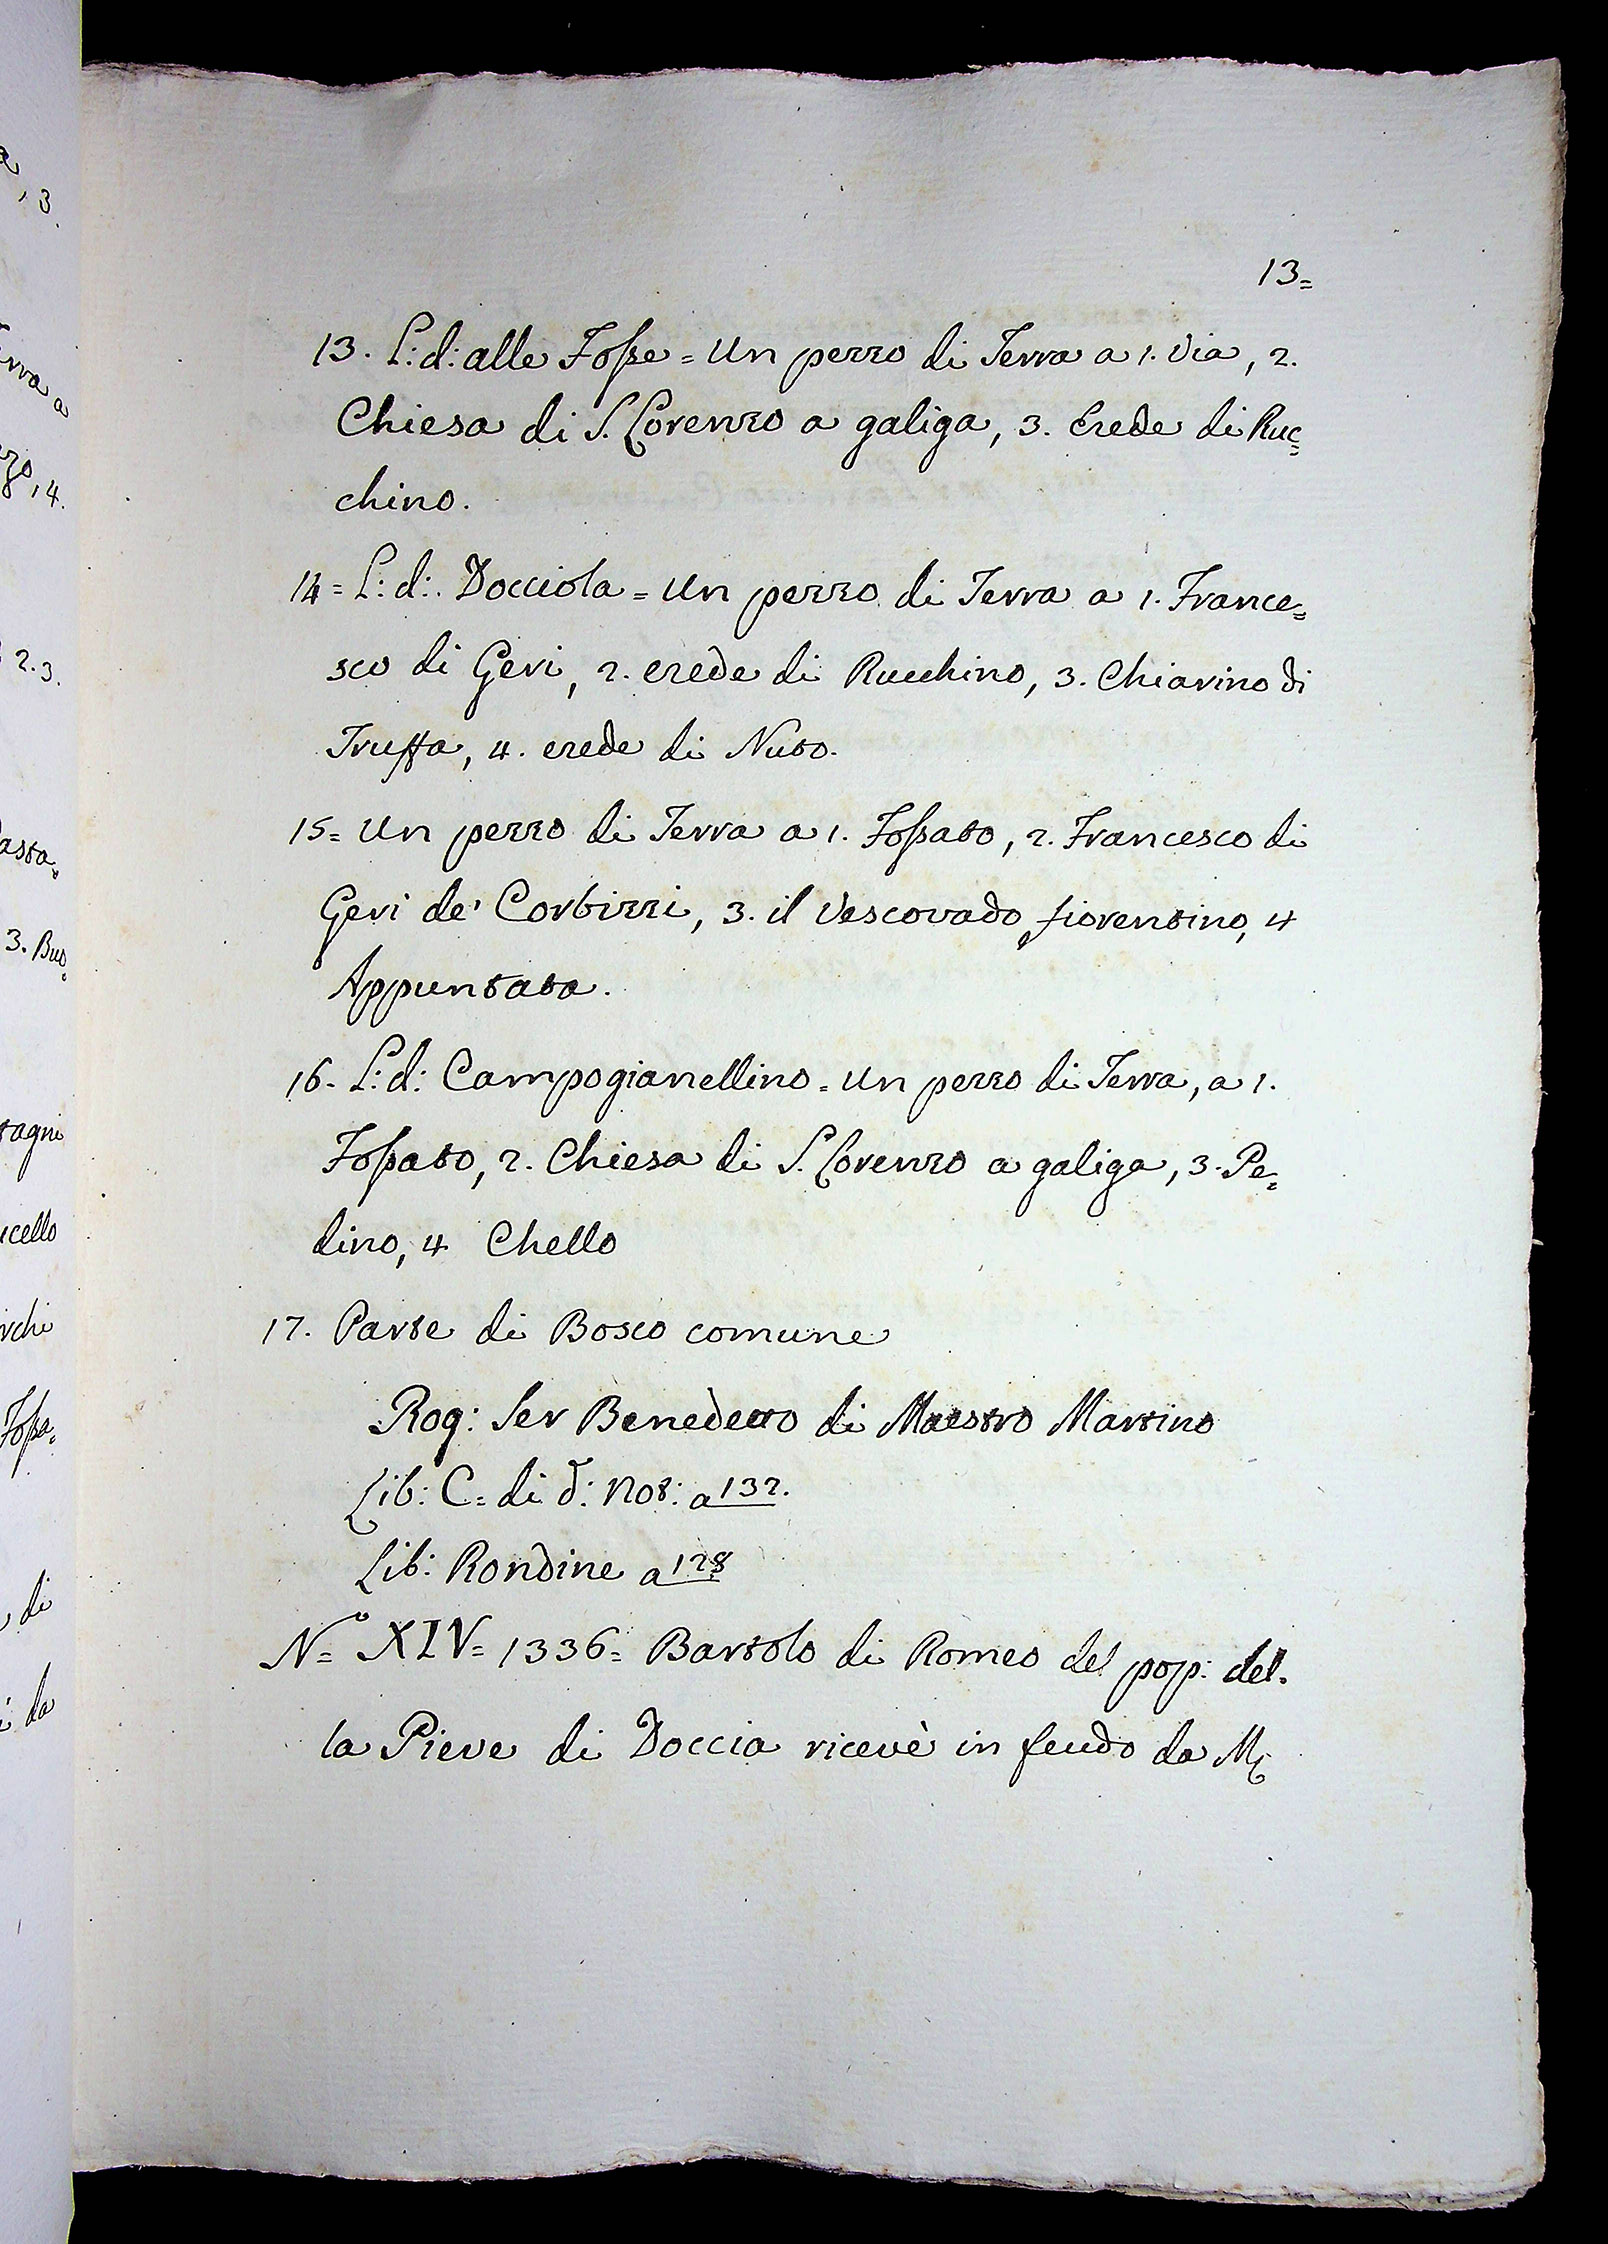 13=
13. L: d: alle Fosse = Un pezzo di Terra a 1. Via, 2.
Chiesa di S. Lorenzo a galiga, 3. Erede di Ruc=
chino.
14 = L: d: Docciola = Un pezzo di Terra a 1. France=
sco di Geri, 2. erede di Rucchino, 3. Chiarino di
Truffa, 4. erede di Nuto.
15 = Un pezzo di Terra a 1. Fossato, 2. Francesco di
Geri de' Corbizzi, 3. il Vescovado fiorentino, 4
Appuntata.
16 - L: d: Campogianellino = Un pezzo di Terra, a 1.
Fossato, 2. Chiesa di S. Lorenzo a galiga, 3. Pe=
dino, 4 Chello
17. Parte di Bosco comune
Rog: Ser Benedetto di Maestro Martino
Lib: C = di d: Not: a 132.
Lib: Rondine a 128
N.º XIV = 1336 = Bartolo di Romeo del pop: del=
la Pieve di Doccia ricevè in feudo da M: